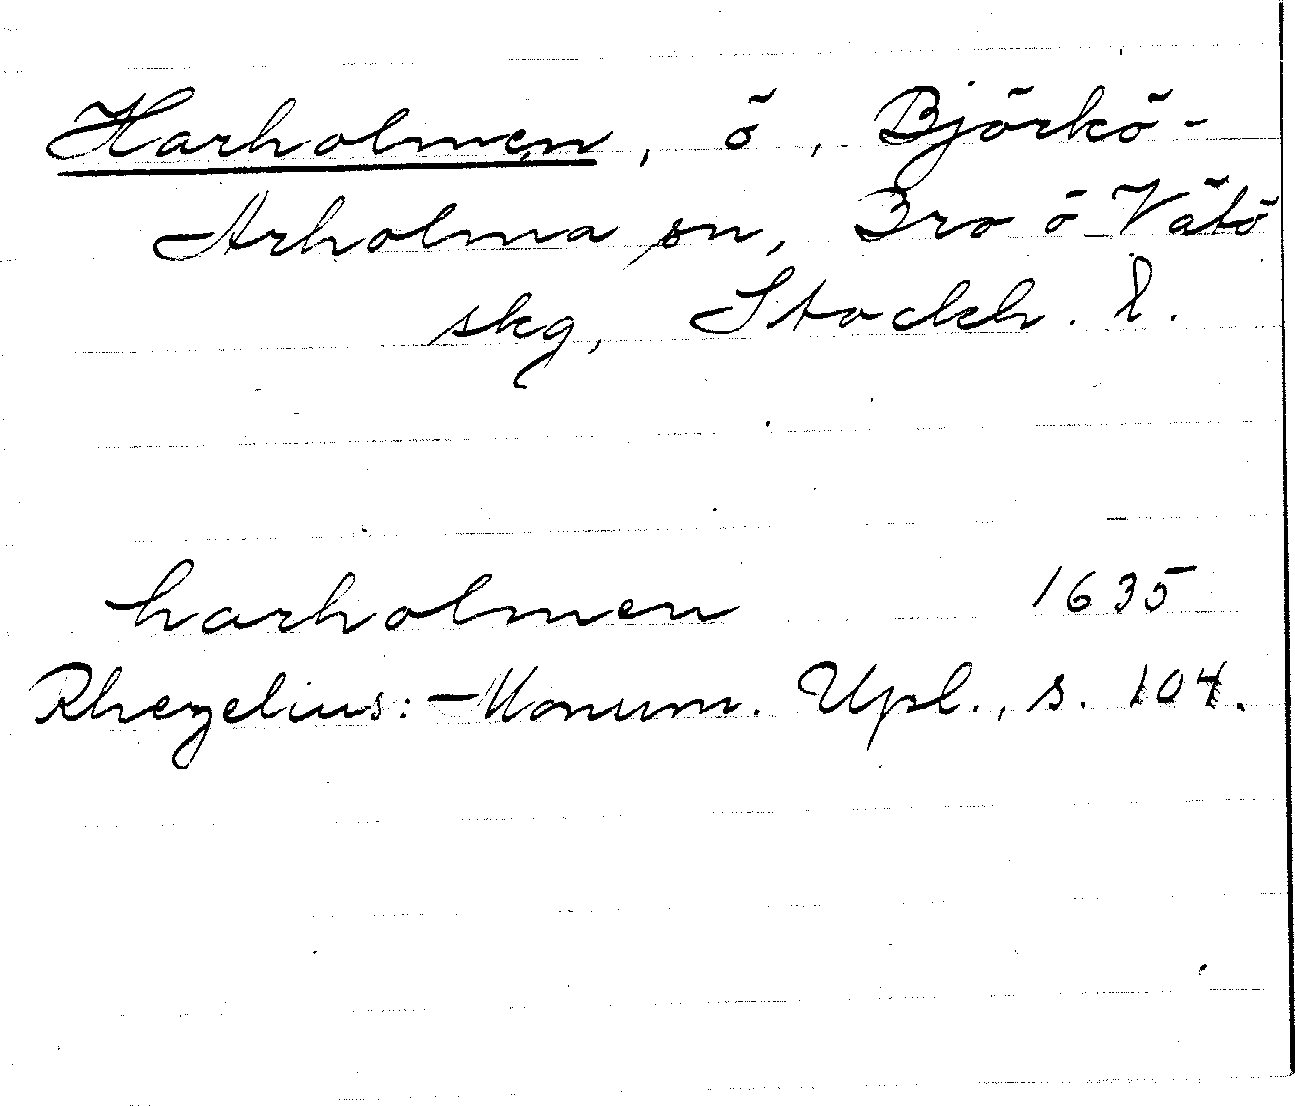 Harholmen, ö, Björkö-
Arholma sn, Bro o Vätö
skg, Stockh. l.
harholmen 1635
Rhezelius: Monum. Upl., s. 104.